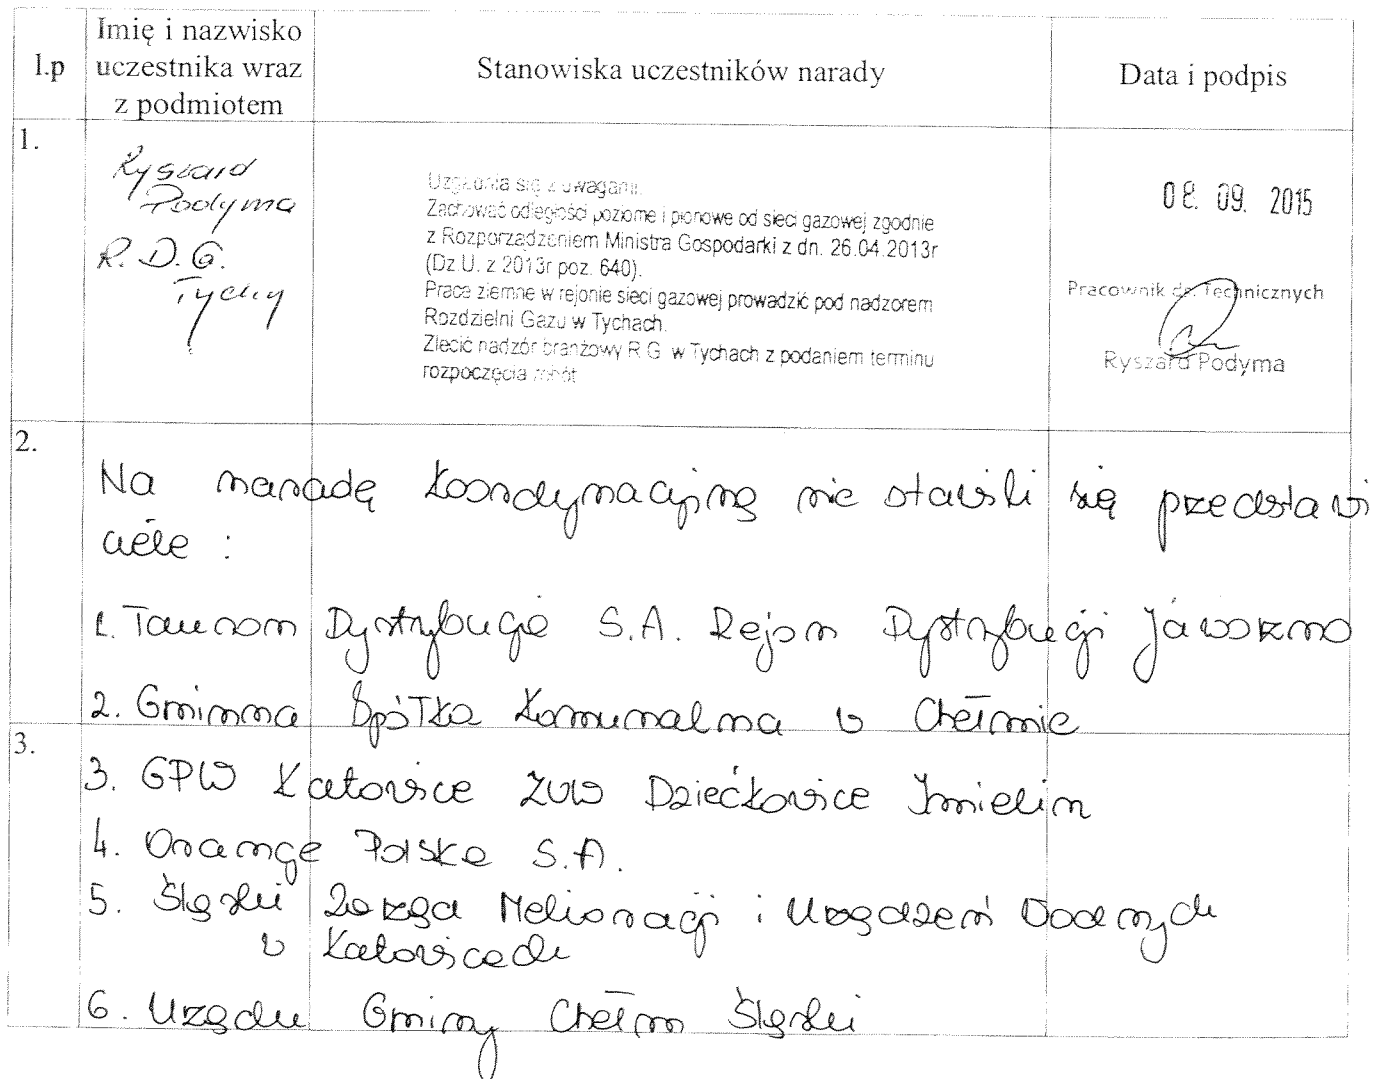 l.p
Imię i nazwisko
uczestnika wraz
z podmiotem
Stanowiska uczestników narady
Data i podpis
1.
Ryszard
Podyma
R.D.G.
Tychy
Uzgadnia się z uwagami.
Zachować odległości poziome i pionowe od sieci gazowej zgodnie
z Rozporządzeniem Ministra Gospodarki z dn. 26.04.2013r
(Dz.U. z 2013r poz. 640).
Prace ziemne w rejonie sieci gazowej prowadzić pod nadzorem
Rozdzielni Gazu w Tychach.
Zlecić nadzór branżowy R.G. w Tychach z podaniem terminu
rozpoczęcia robót
08. 09. 2015
Pracownik ds. Technicznych
Ryszard Podyma
2.
Na naradę koordynacyjną nie stawili się przedstawi
ciele :
1. Tauron Dystrybucja S.A. Rejon Dystrybucji Jaworzno
2. Gminna Spółka Komunalna w Chełmie
3.
3. GPW Katowice ZUW Dziećkowice Imielin
4. Orange Polska S.A.
5. Śląski Zarząd Melioracji i Urządzeń Wodnych
w Katowicach
6. Urzędu Gminy Chełm Śląski